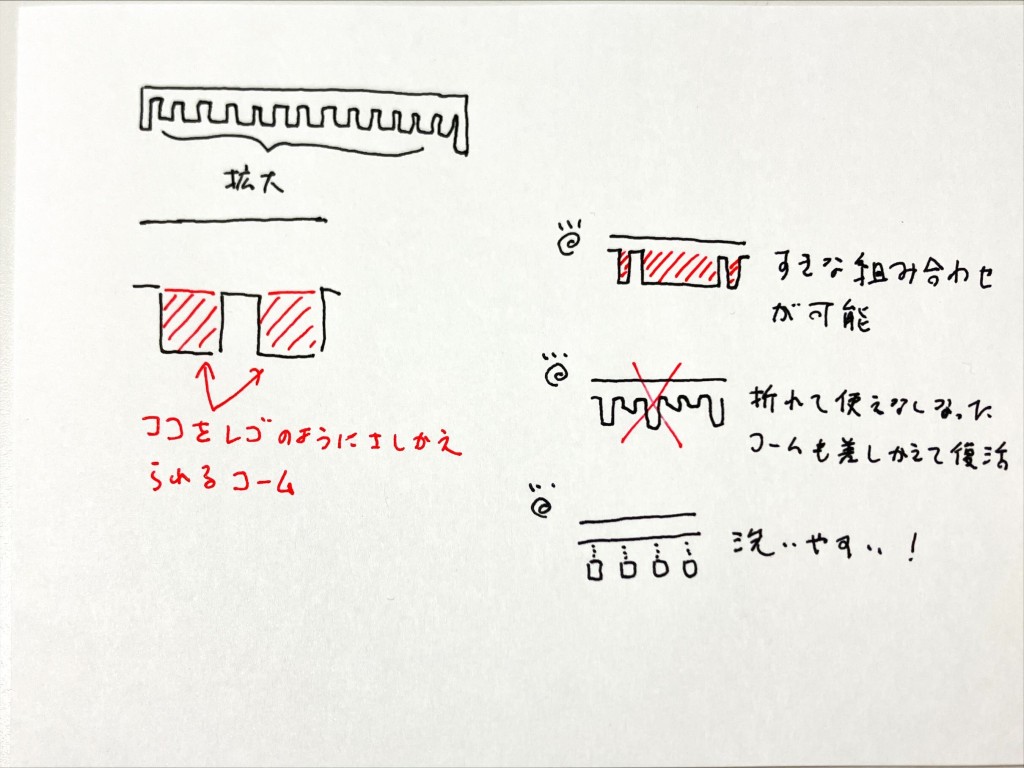 拡大
ココをレゴのようにさしかえ
られるコーム
すきな組み合わせ
が可能
折れて使えなくなった
コームも差しかえて復活
洗いやすい！